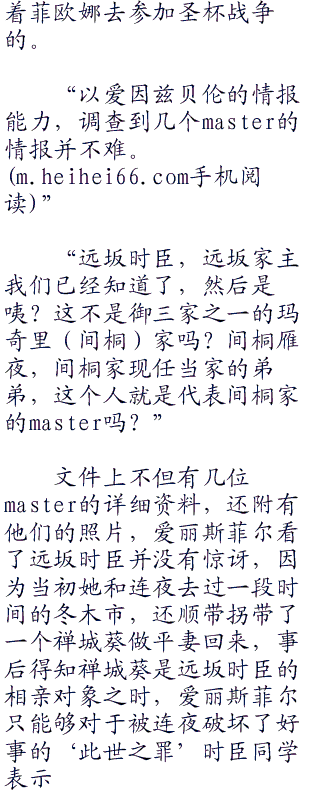 着菲欧娜去参加圣杯战争
的。
“以爱因兹贝伦的情报
能力，调查到几个master的
情报并不难。
(m.heihei66.com手机阅
读)”
“远坂时臣，远坂家主
我们已经知道了，然后是
咦？这不是御三家之一的玛
奇里（间桐）家吗？间桐雁
夜，间桐家现任当家的弟
弟，这个人就是代表间桐家
的master吗？”
文件上不但有几位
master的详细资料，还附有
他们的照片，爱丽斯菲尔看
了远坂时臣并没有惊讶，因
为当初她和连夜去过一段时
间的冬木市，还顺带拐带了
一个禅城葵做平妻回来，事
后得知禅城葵是远坂时臣的
相亲对象之时，爱丽斯菲尔
只能够对于被连夜破坏了好
事的‘此世之罪’时臣同学
表示